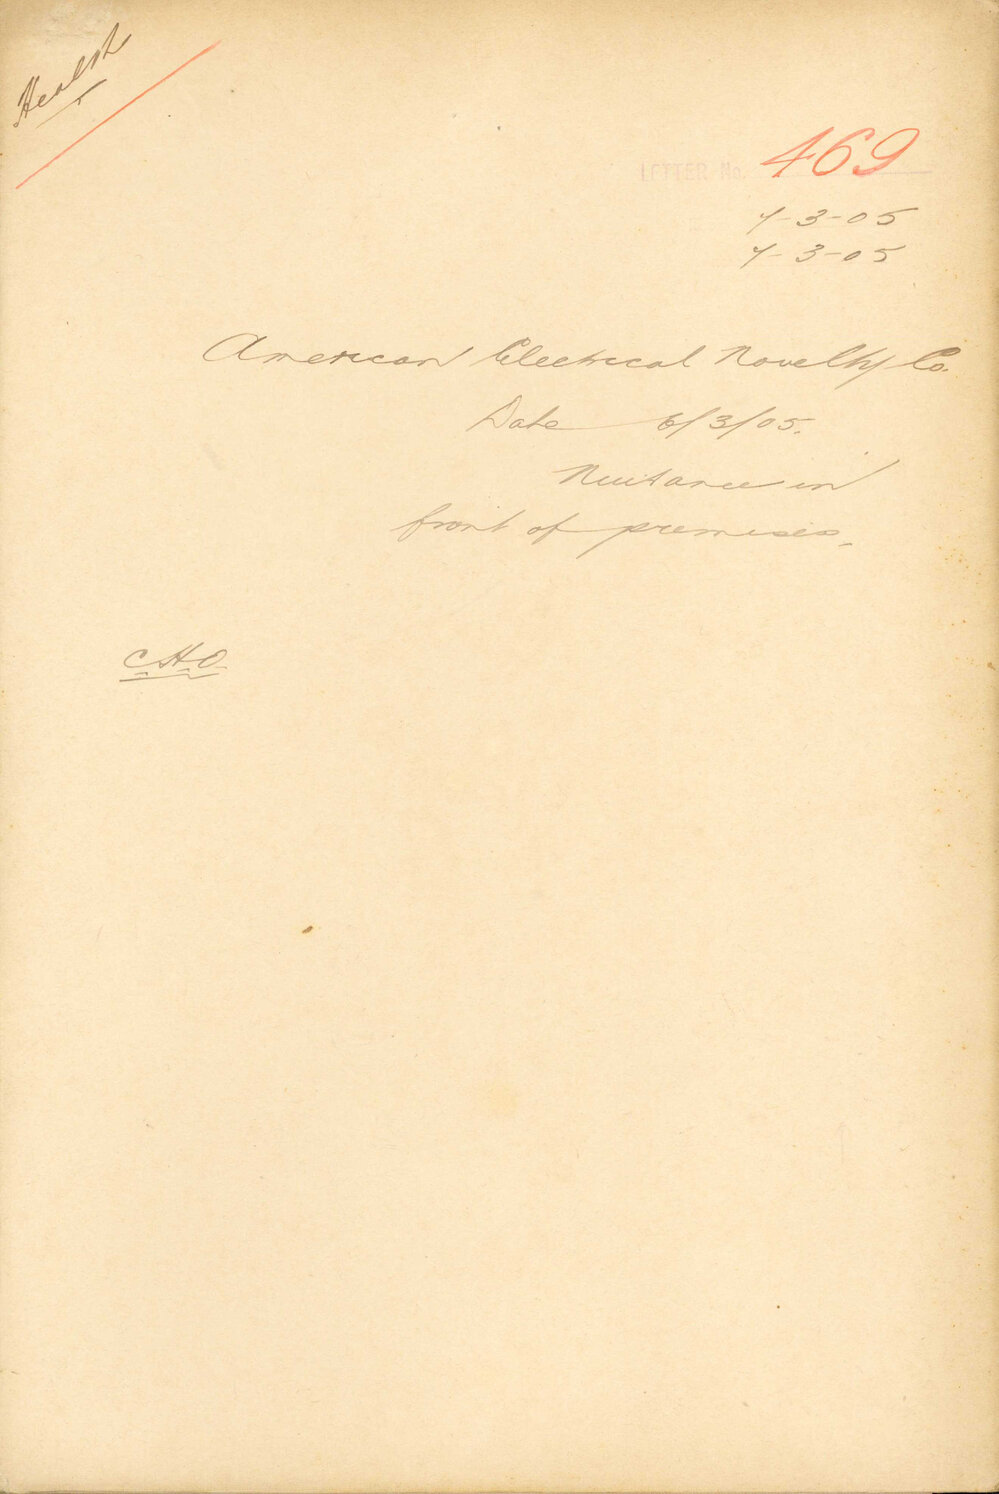 Health
LETTER No. 469
7-3-05
7-3-05
American Electrical Novelty Co.
Date 6/3/05.
Nuisance in
front of premises.
CHO